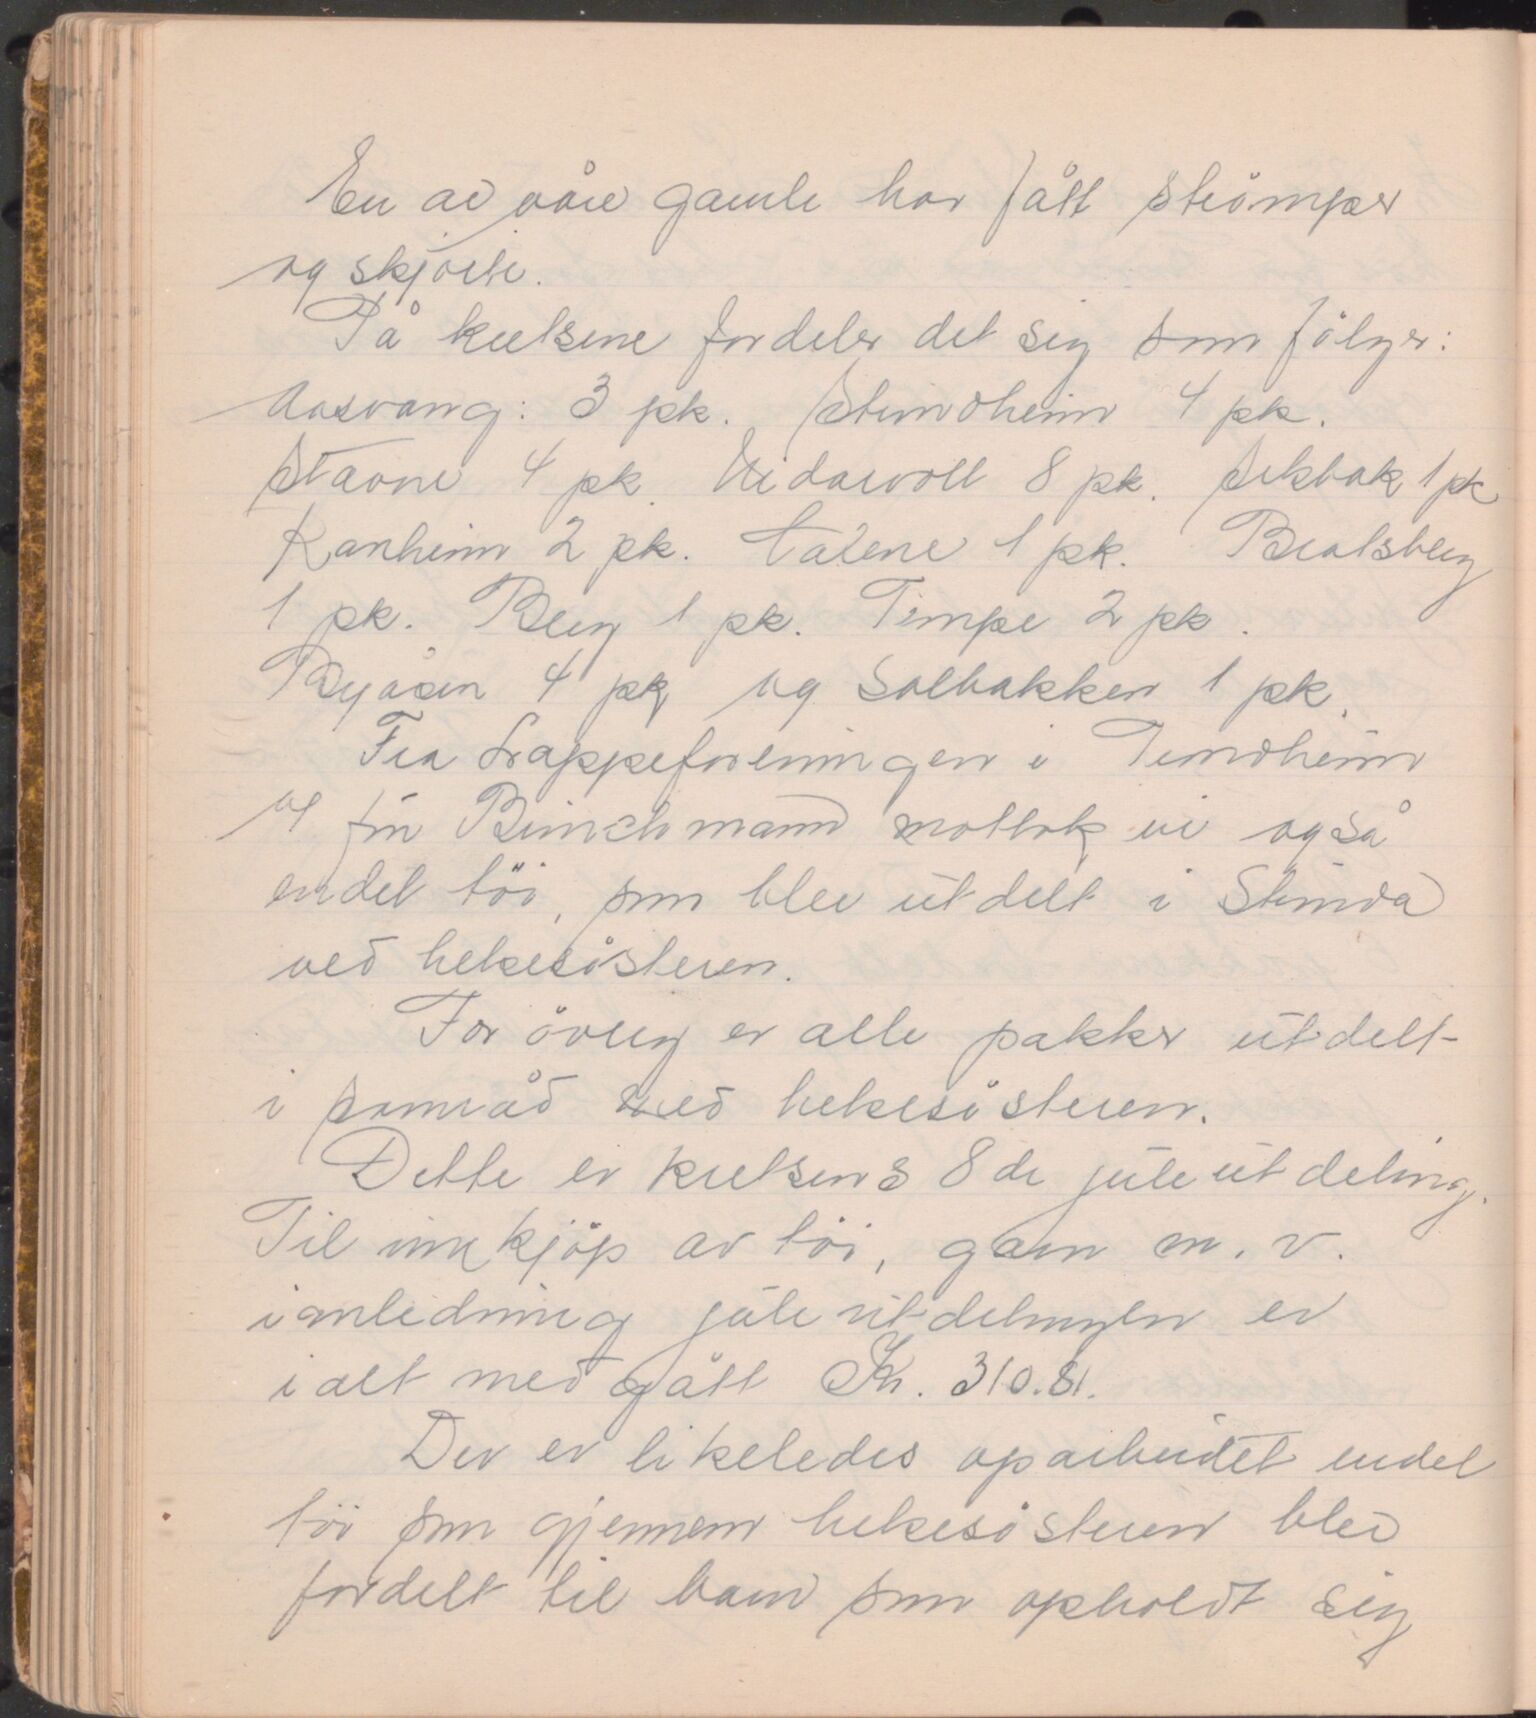 En av våre gamle har fått strömper
og skjorte.
På kretsene fordeler det sig som fölger:
Aasvang: 3 pk. Strindheim 4 pk.
Stavne 4 pk. Nidarvoll 8 pk. Selsbak 1 pk
Ranheim 2 pk. Eidene 1 pk. Bratsberg
1 pk. Berg 1 pk. Tempe 2 pk.
Byåsen 4 pk og Solbakken 1 pk.
Fra Lappeforeningen i Trondheim
og fru Brinchmann mottok vi også
endel töi, som blev utdelt i Strinda
ved helsesösteren.
For övrig er alle pakker utdelt
i samråd med helsesösteren.
Dette er kretsens 8de juleutdeling.
Til innkjöp av töi, garn m.v.
i anledning juleutdelingen er
ialt medgått Kr. 310.81.
Der er likeledes oparbeidet endel
töi som gjennem helsesösteren blev
fordelt til barn som opholdt sig